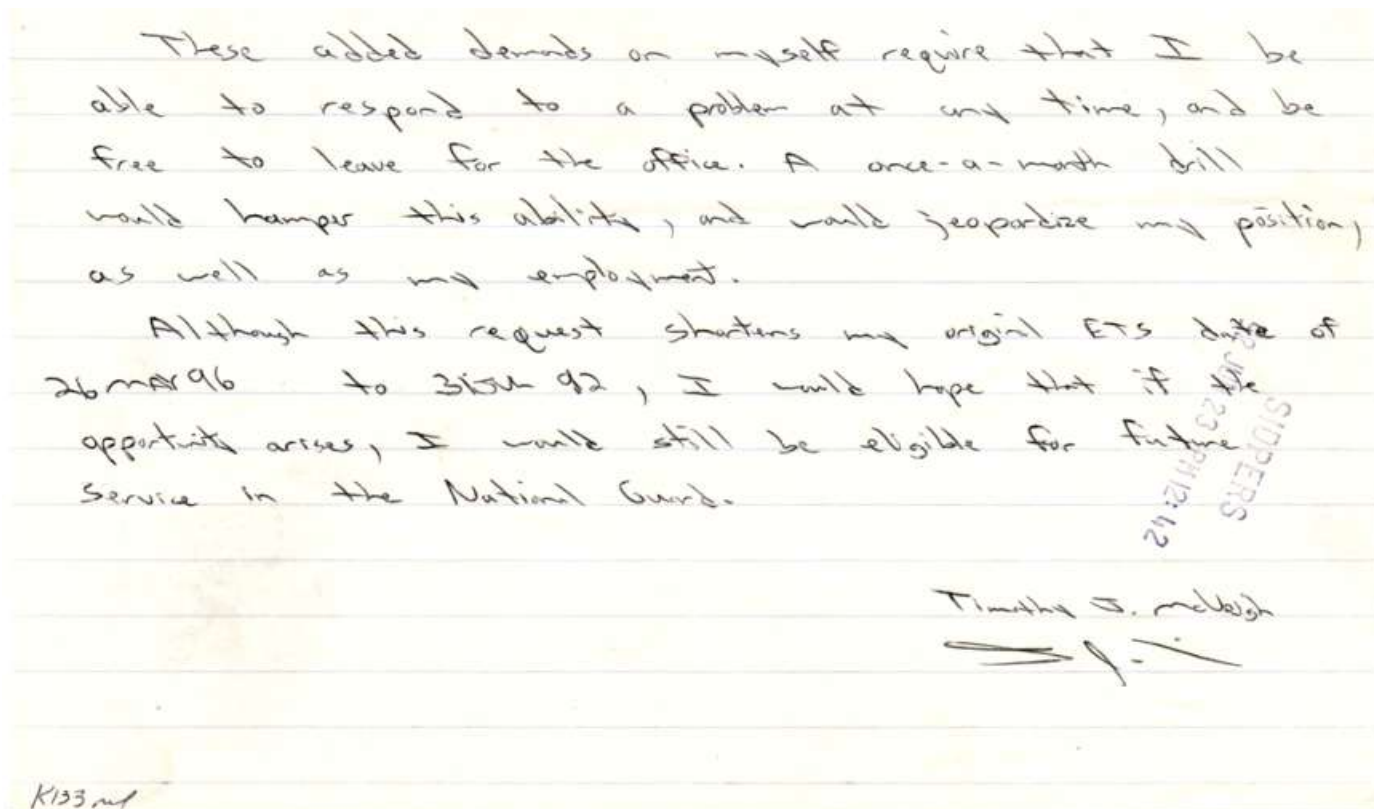 These added demands on myself require that I be
able to respond to a problem at any time, and be
free to leave for the office. A once-a-month drill
would hamper this ability, and would jeopardize my position,
as well as my employment.
Although this request shortens my original ETS date of
26 MAR 96 to 31 JUL 92, I would hope that if the
opportunity arises, I would still be eligible for future
service in the National Guard.
SIDPERS
23 PM 12:42
Timothy J. McVeigh
K133